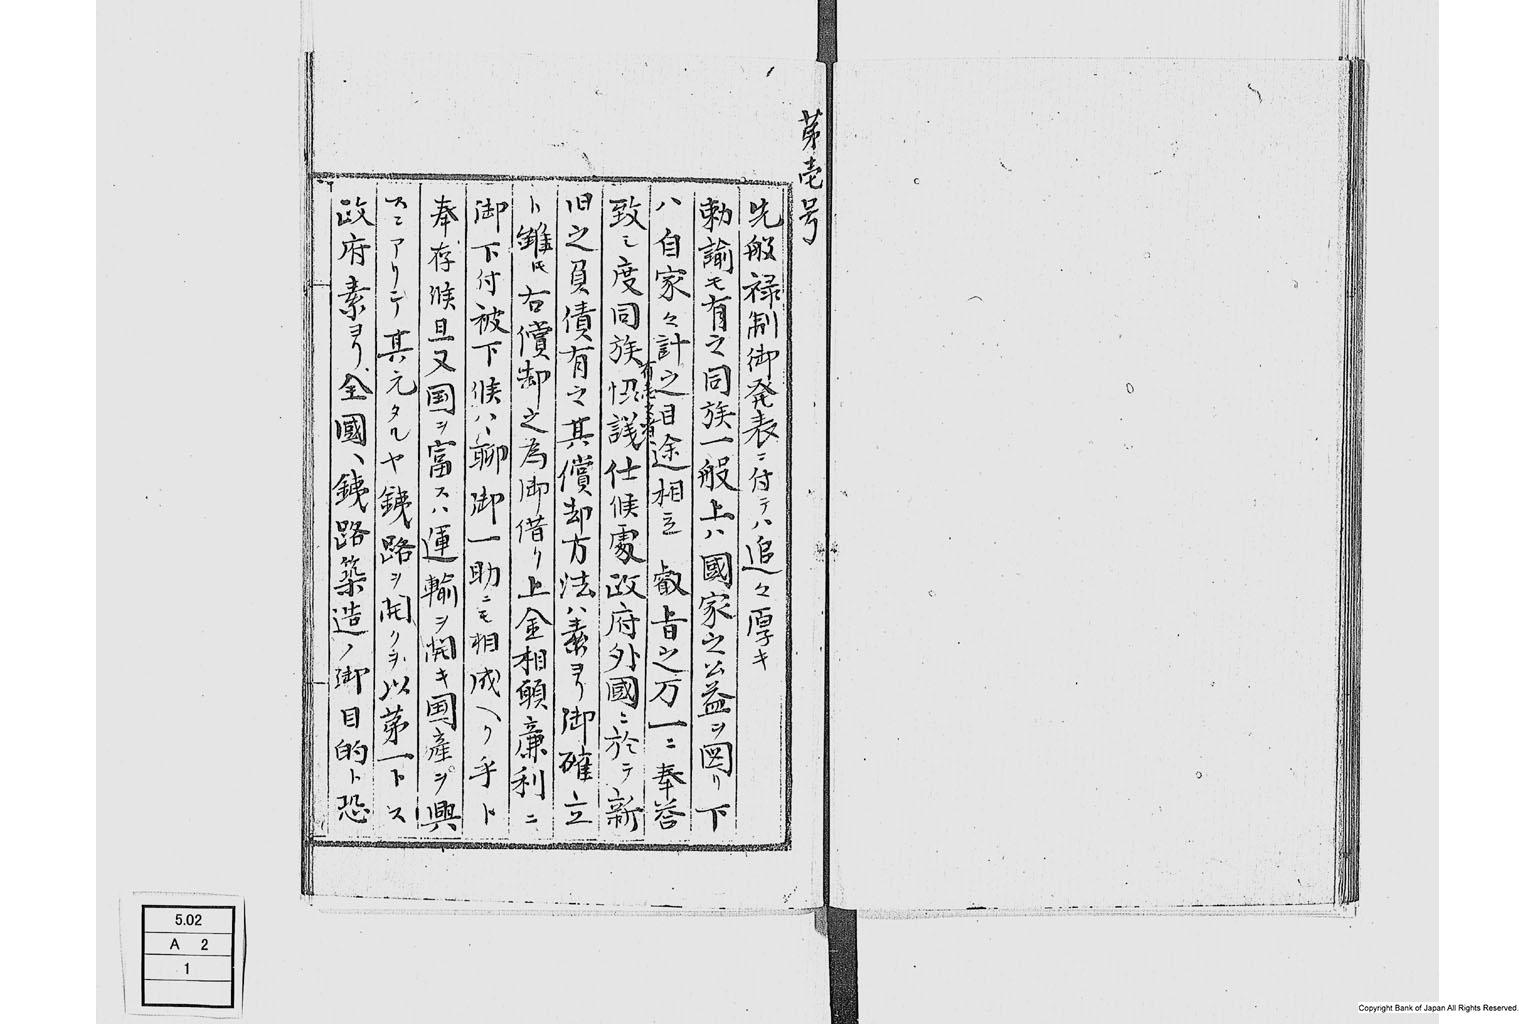 第壱号
先般禄制御発表ニ付テハ追々厚キ
勅諭モ有之同族一般上ハ國家之公益ヲ図リ下
ハ自家々計之目途相立 叡旨之万一ニ奉答
有志之者
致シ度同族協議仕候處政府外國ニ於テ新
旧之負債有之其償却方法ハ素ヨリ御確立
ト雖𪜈右償却之為御借リ上金相願廉利ニ
御下付被下候ハヽ聊御一助ニモ相成ヘク乎ト
奉存候且又国ヲ富スハ運輸ヲ開キ国産ヲ興
スニアリテ其元タルヤ銕路ヲ開クヲ以第一トス
政府素ヨリ全國ヘ銕路築造ノ御目的ト恐
5.02
A 2
1
Copyright Bank of Japan All Rights Reserved.